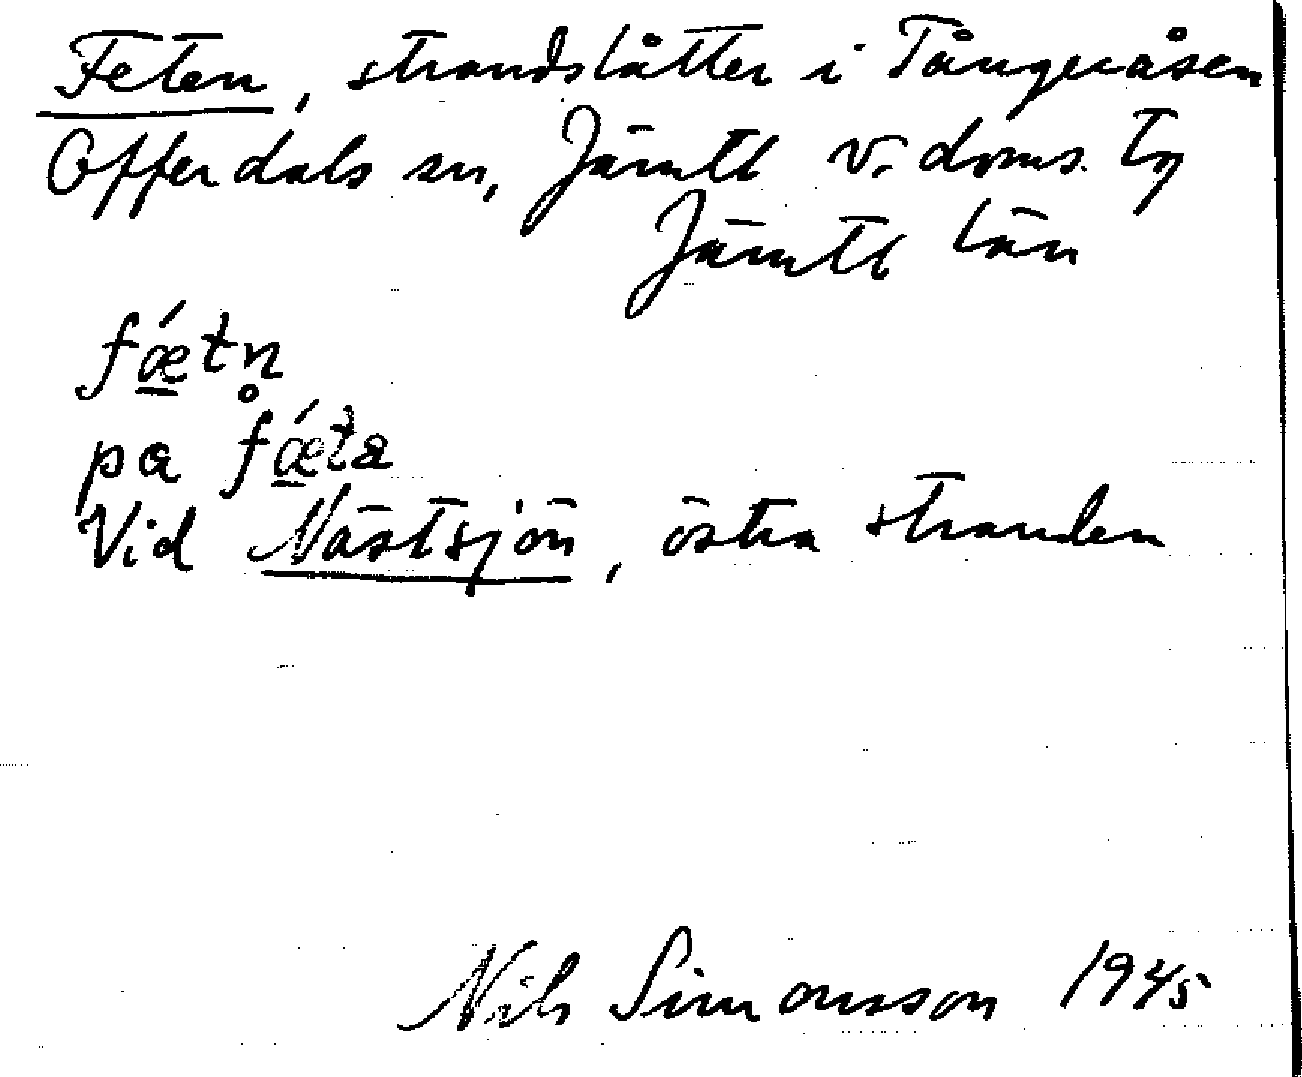 Feten, strandslåtter i Tångeråsen
Offerdals sn, Jämtl v. doms. tg
Jämtl län
fǽ̲tn̥
pa fǽ̲ta
Vid Nästsjön, östra stranden
Nils Simonsson 1945